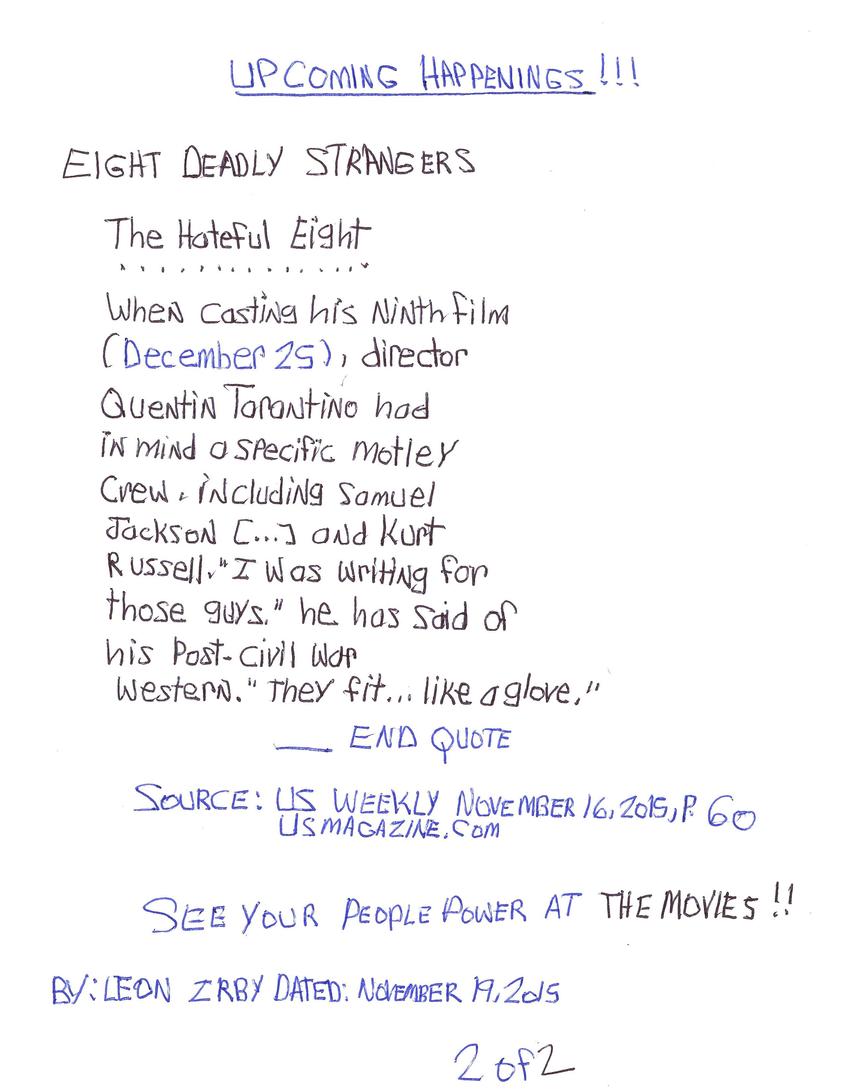 UPCOMING HAPPENINGS!!!
EIGHT DEADLY STRANGERS
The Hateful Eight
.............
When casting his Ninth film
(December 25), director
Quentin Tarantino had
in mind a specific motley
Crew, including Samuel
Jackson [...] and Kurt
Russell. "I was writing for
those guys." he has said of
his Post-Civil War
Western. "They fit... like a glove."
__ END QUOTE
SOURCE: US WEEKLY NOVEMBER 16, 2015, P. 60
USMAGAZINE.COM
SEE YOUR PEOPLE POWER AT THE MOVIES!!
BY: LEON IRBY DATED: NOVEMBER 19, 2015
2 of 2